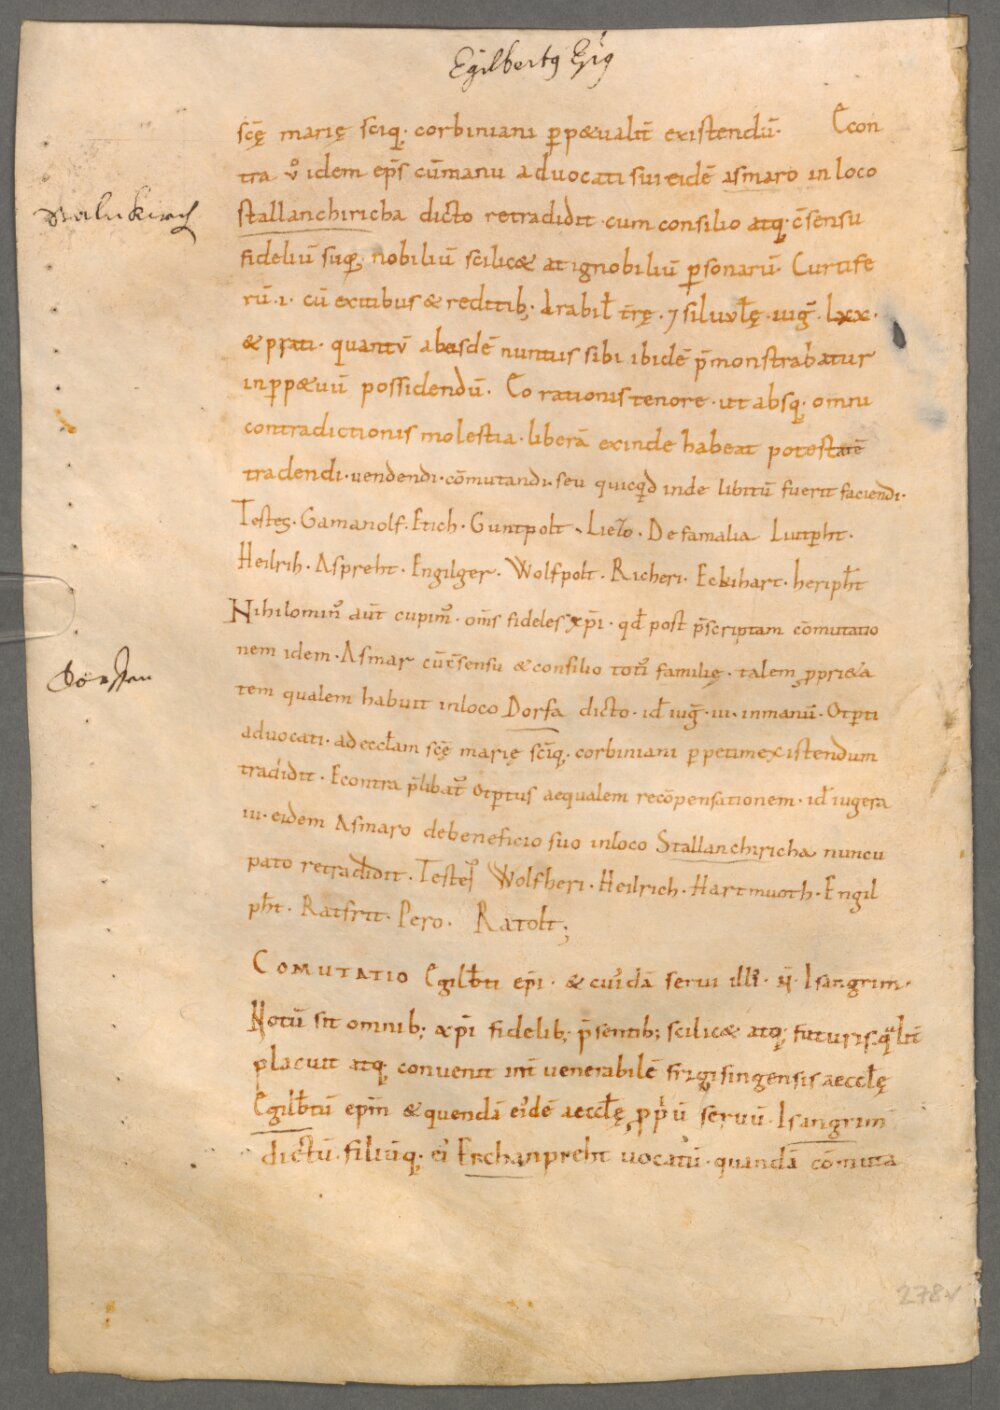 Egilbertꝯ Epꝯ
scę marię sciq; corbiniani ꝑpetualit̄ existendū· Econ
tra v̊ idem ep̄s cū manu aduocati sui eidē asmaro in loco
Stalnkirch
stallanchiricha dicto retradidit· cum consilio atq; c̄sensu
fideliū suoꝝ· nobiliū scilic& at ignobiliū ꝑsonarū· Curtife
rū ·i· cū exitibus & reditib; · arabil̄ tr̄rę · ⁊ siluul̄ę · iuḡ · lxx·
& prati· quantū ab eisdē nuntiis sibi ibidē p̄monstrabatur
in ꝑp&uū possidendū· Eo rationis tenore · ut absq; omni
contradictionis molestia· liberā exinde habeat potestatē
tradendi· uendendi· cōmutandi· seu quicq̄d inde libitū fuerit faciendi·
Testes· Gamanolf· Etich· Guntpolt· Liezo· De familia Liutp̄ht·
Heilrih· Aspreht· Engilger· Wolfpolt· Richeri· Eckihart· heripħt
Nihilominꝰ aut̄ cupimꝰ· om̄s fideles xp̄i· qd̄ post p̄scriptam cōmutatio
nem idem· Asmar cū c̄sensu & consilio totiꝰ familię· talem ꝓpri&a
Dorffen
tem qualem habuit in loco Dorfa dicto· id̄ iuḡ · iii· in manū· Otꝑti
aduocati· ad eccl̄am scę marię scīq; corbiniani ꝑpetim existendum
tradidit· Econtra p̄libatꝰ Otꝑtus aequalem recōpensationem· id̄ iugera
iii· eidem Asmaro de beneficio suo in loco Stallanchiricha nuncu
pato retradidit· Testes Wolfheri· Heilrich· Hartmuoth· Engil
pħt· Ratfrit· Pero· Ratolt;
COMUTATIO Egilb̄ti ep̄i· & cuiꝰdā serui illiꝰ · Isangrim·
Notū sit omnib; xp̄i fidelib; p̄sentib; scilic& atq; futuris· q̄lit̄
placuit atq; conuenit int̄ uenerabilē frigisingensis aeccl̄ę
Egilb̄tū ep̄m & quendā eiꝰdē aeccl̄ę ꝓpriū seruū· Isangrim
dictū· filiūq; eiꝰ Erchanpreht uocatū· quandā cōmuta
278v